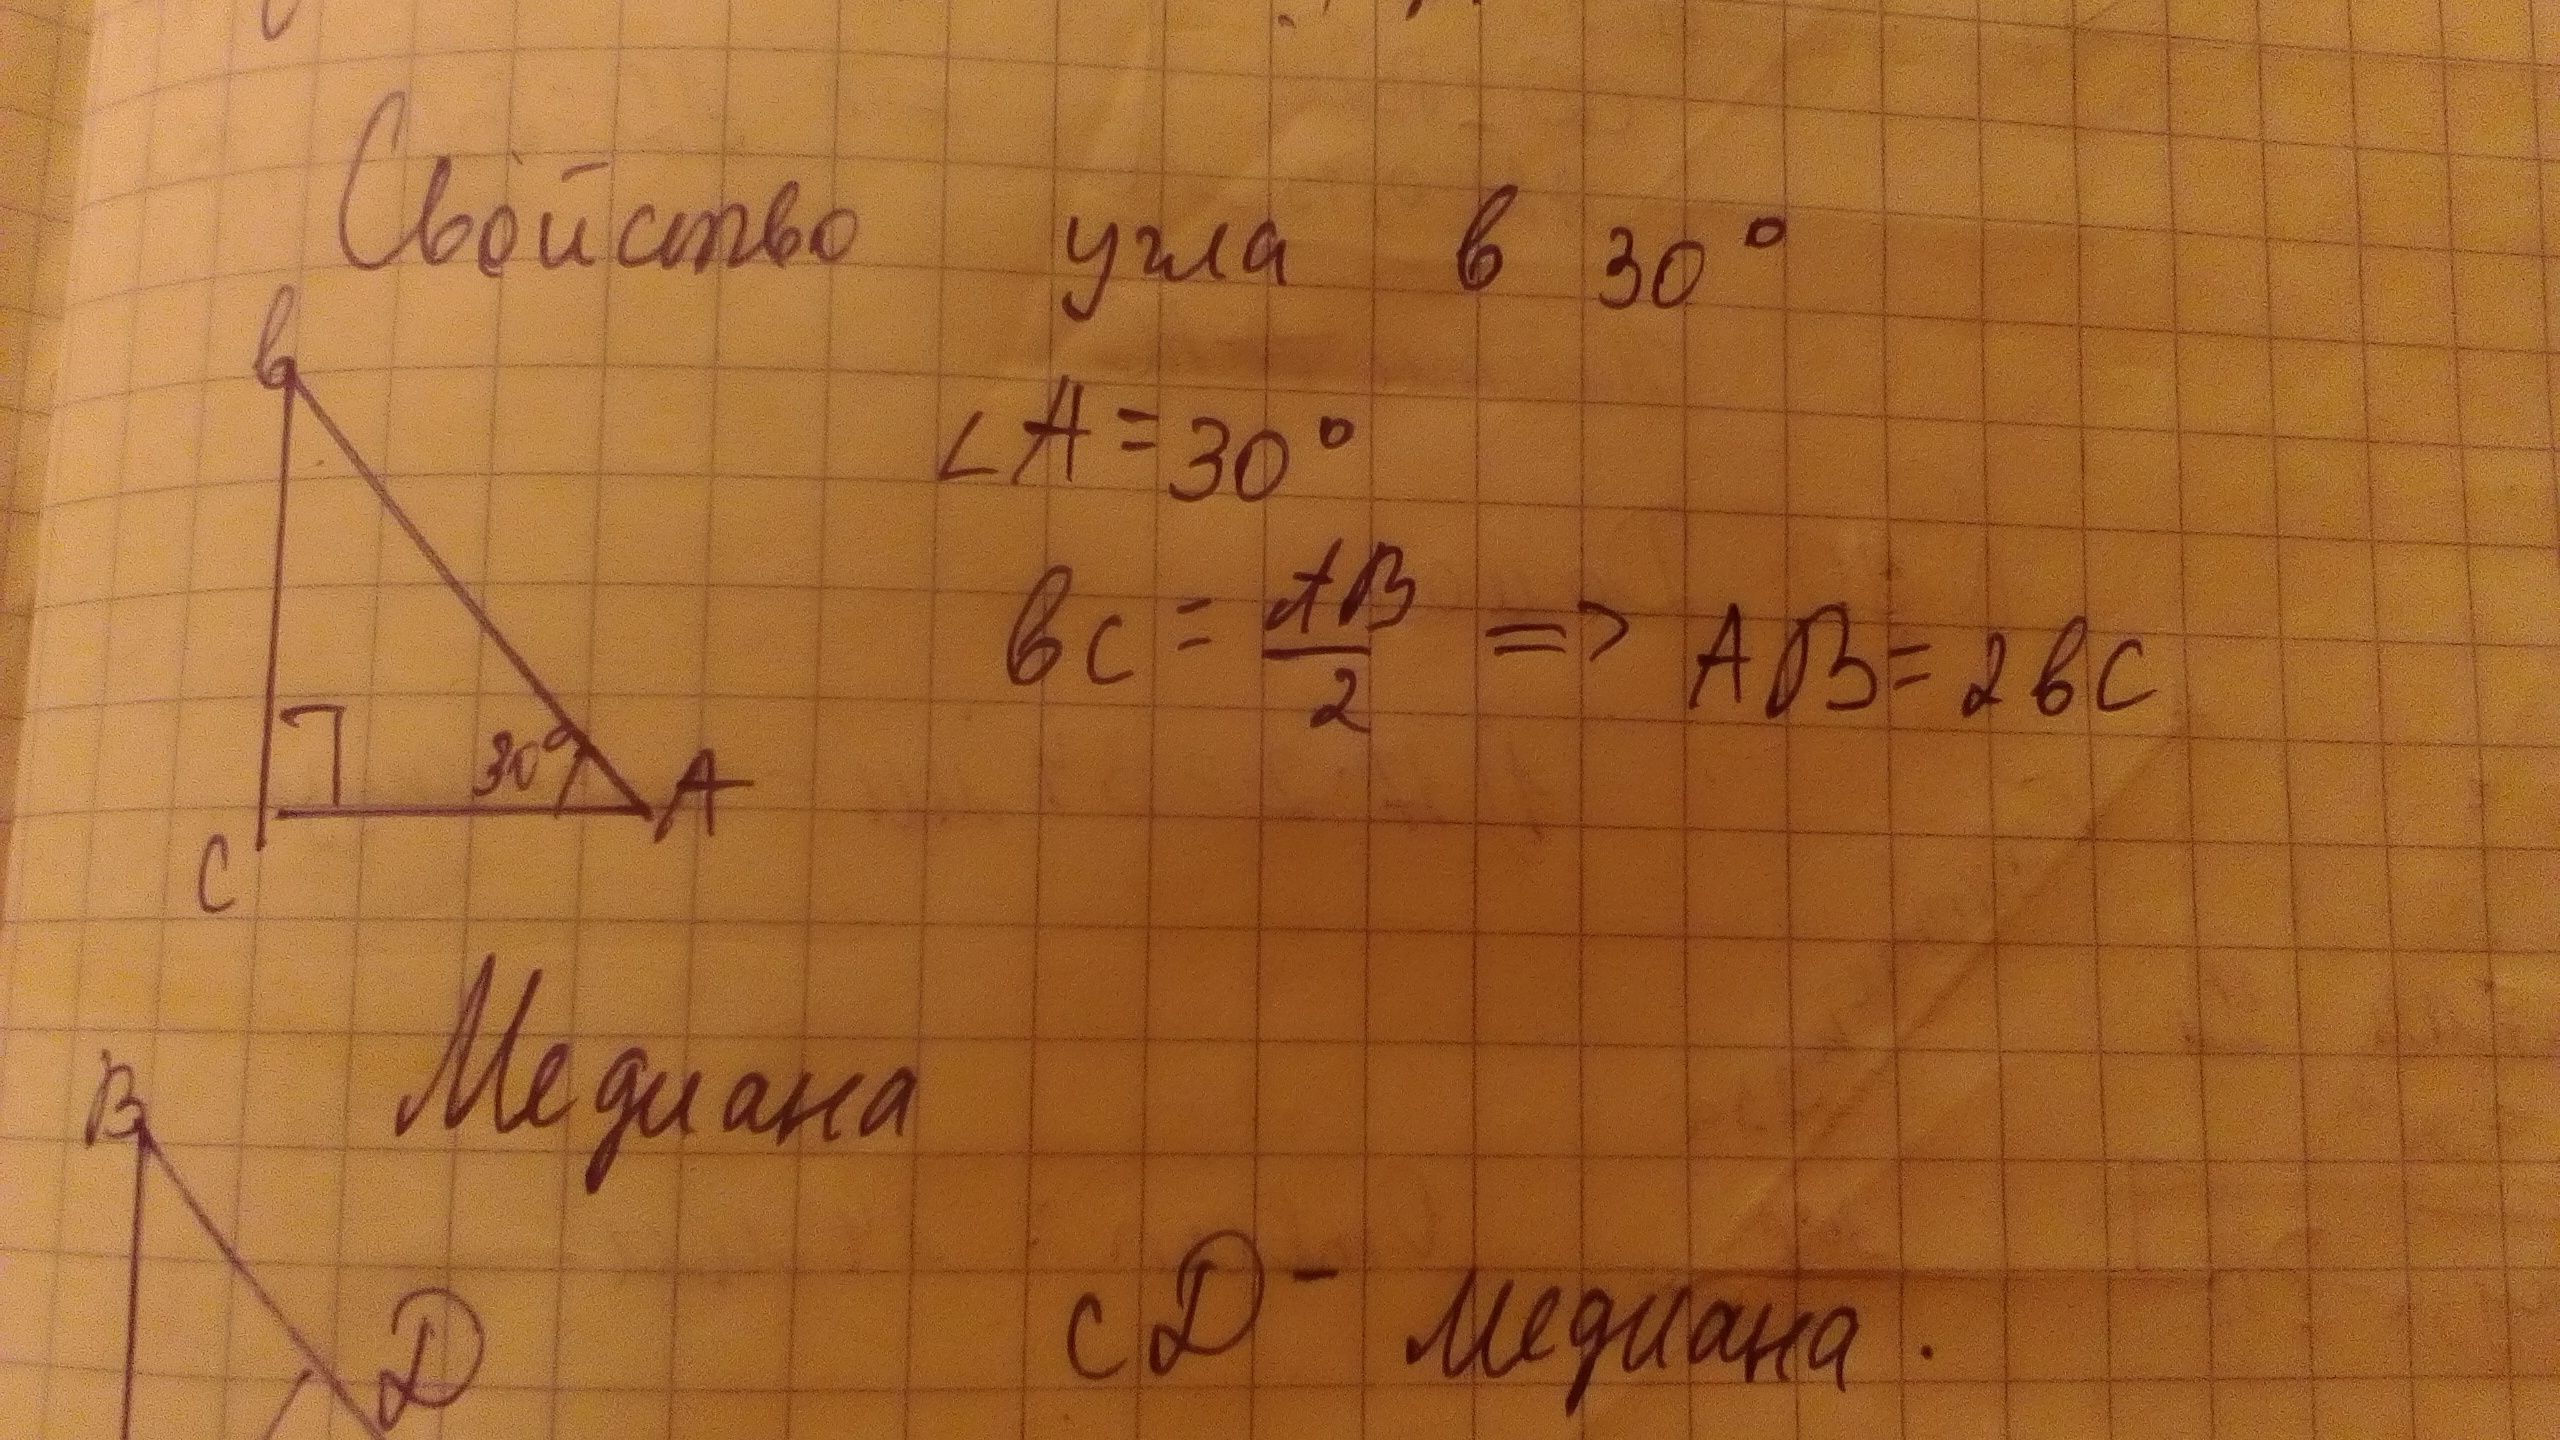 Свойство угла в 30°
В
∠A = 30°
BC = AB/2 => AB = 2BC
30°
A
C
Медиана
B
D
CD - медиана.